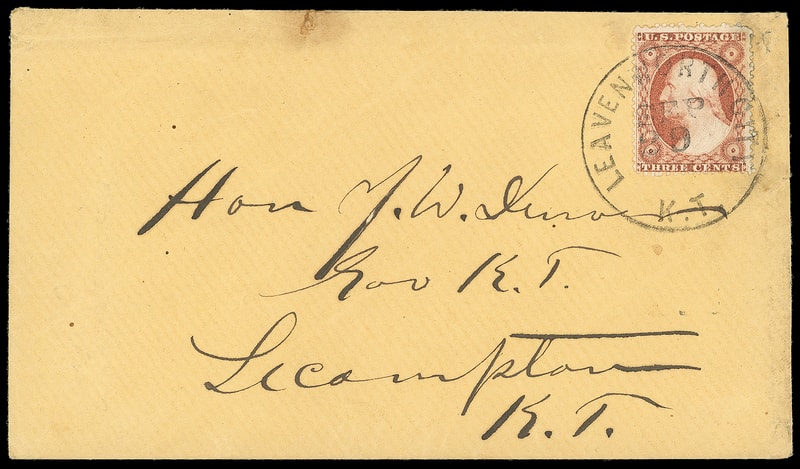 U.S. POSTAGE
THREE CENTS
LEAVENWORTH CITY
SEP
9
K.T.
Hon J. W. Denver
Gov K.T.
Lecompton
K.T.